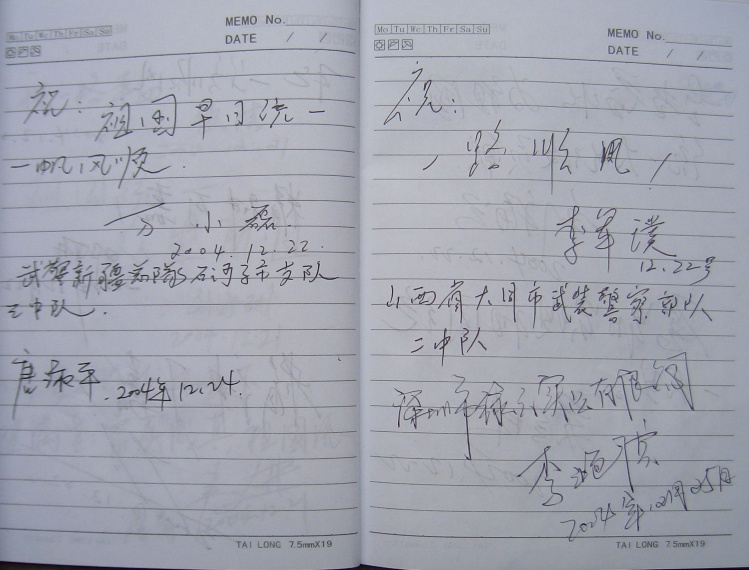 Mo Tu We Th Fr Sa Su
MEMO No.
DATE / /
祝:
祖国早日统一
一帆风顺.
万小磊.
2004.12.22.
武警新疆总队石河子市支队
三中队.
2004年12.24.
TAI LONG 7.5mmX19
Mo Tu We Th Fr Sa Su
MEMO No.
DATE / /
祝:
一路顺风!
李军
12.22号
山西省大同市武装警察部队
二中队
深圳市 实业有限公司
李
2004年12月25日
TAI LONG 7.5mmX19